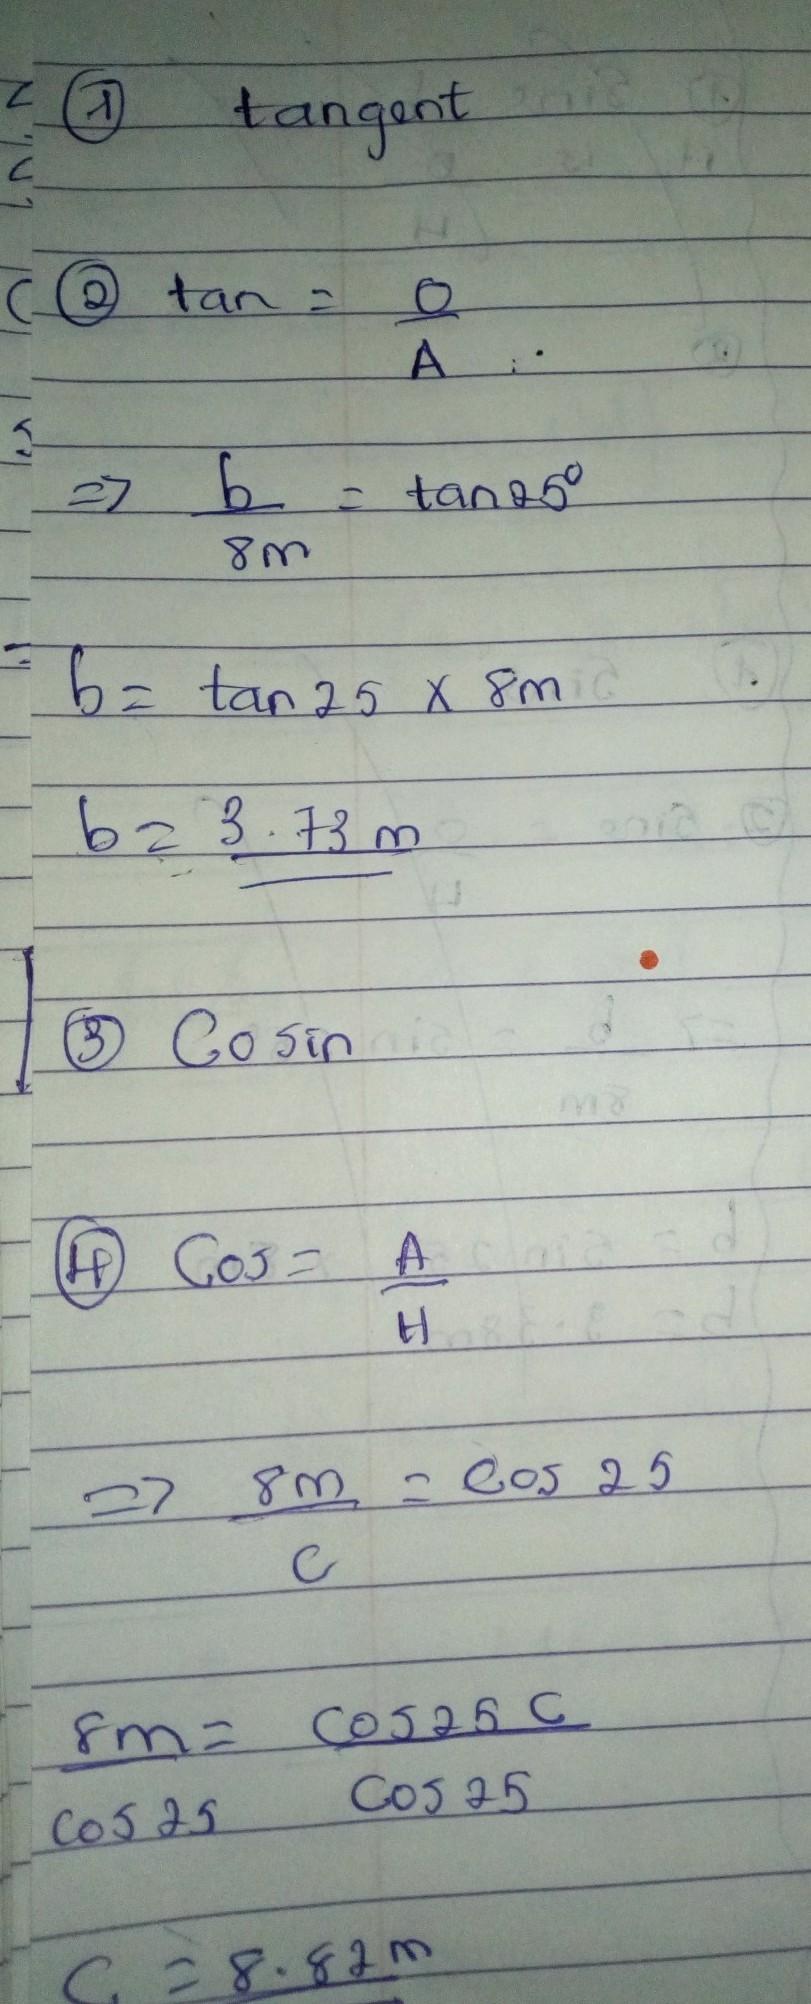 ① tangent
② tan = O
A
=> b = tan 25°
8m
b = tan 25 x 8m
b = 3.73 m
③ Cosin
④ Cos = A
H
=> 8m = Cos 25
C
8m = Cos 25 C
Cos 25 Cos 25
C = 8.82m